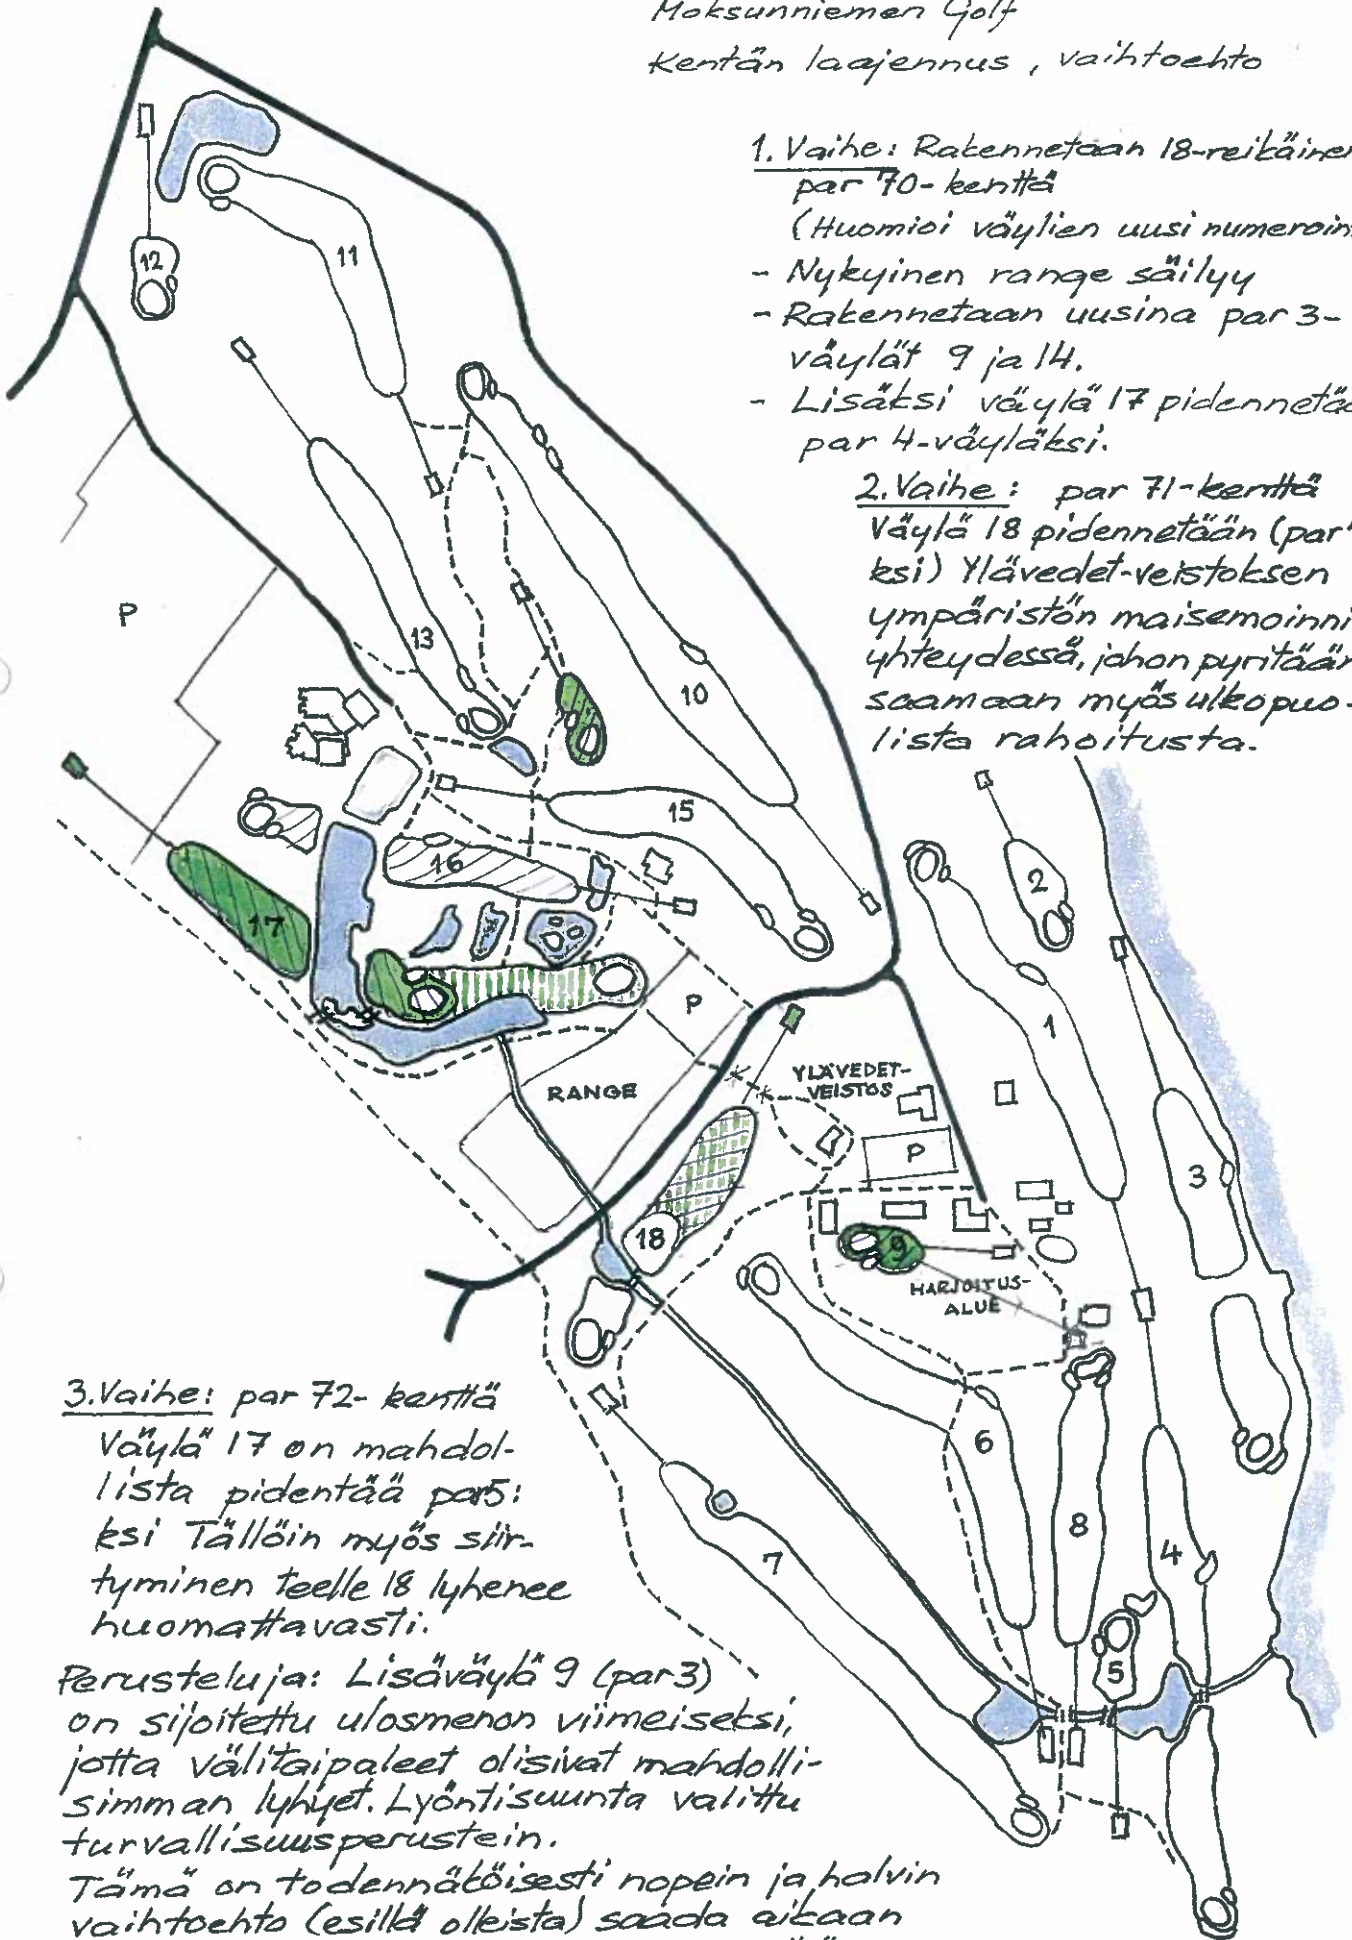 Moksunniemen Golf
Kentän laajennus, vaihtoehto
1. Vaihe: Rakennetaan 18-reikäinen
par 70-kenttä
(Huomioi väylien uusi numeroin
- Nykyinen range säilyy
- Rakennetaan uusina par 3-
väylät 9 ja 14.
- Lisäksi väylä 17 pidennetää
par 4-väyläksi.
2. Vaihe: par 71-kenttä
Väylä 18 pidennetään (par
ksi) Ylävedet-veistoksen
ympäristön maisemoinni
yhteydessä, johon pyritään
saamaan myös ulkopuo-
lista rahoitusta.
12
11
P
13
10
15
16
17
2
1
P
RANGE
YLÄVEDET-
VEISTOS
P
3
18
9
HARJOITUS-
ALUE
6
8
4
7
5
3. Vaihe: par 72-kenttä
Väylä 17 on mahdol-
lista pidentää par5:
ksi Tällöin myös siir-
tyminen teelle 18 lyhenee
huomattavasti.
Perusteluja: Lisäväylä 9 (par3)
on sijoitettu ulosmenon viimeiseksi,
jotta välitaipaleet olisivat mahdolli-
simman lyhyet. Lyöntisuunta valittu
turvallisuusperustein.
Tämä on todennäköisesti nopein ja halvin
vaihtoehto (esillä olleista) saada aikaan